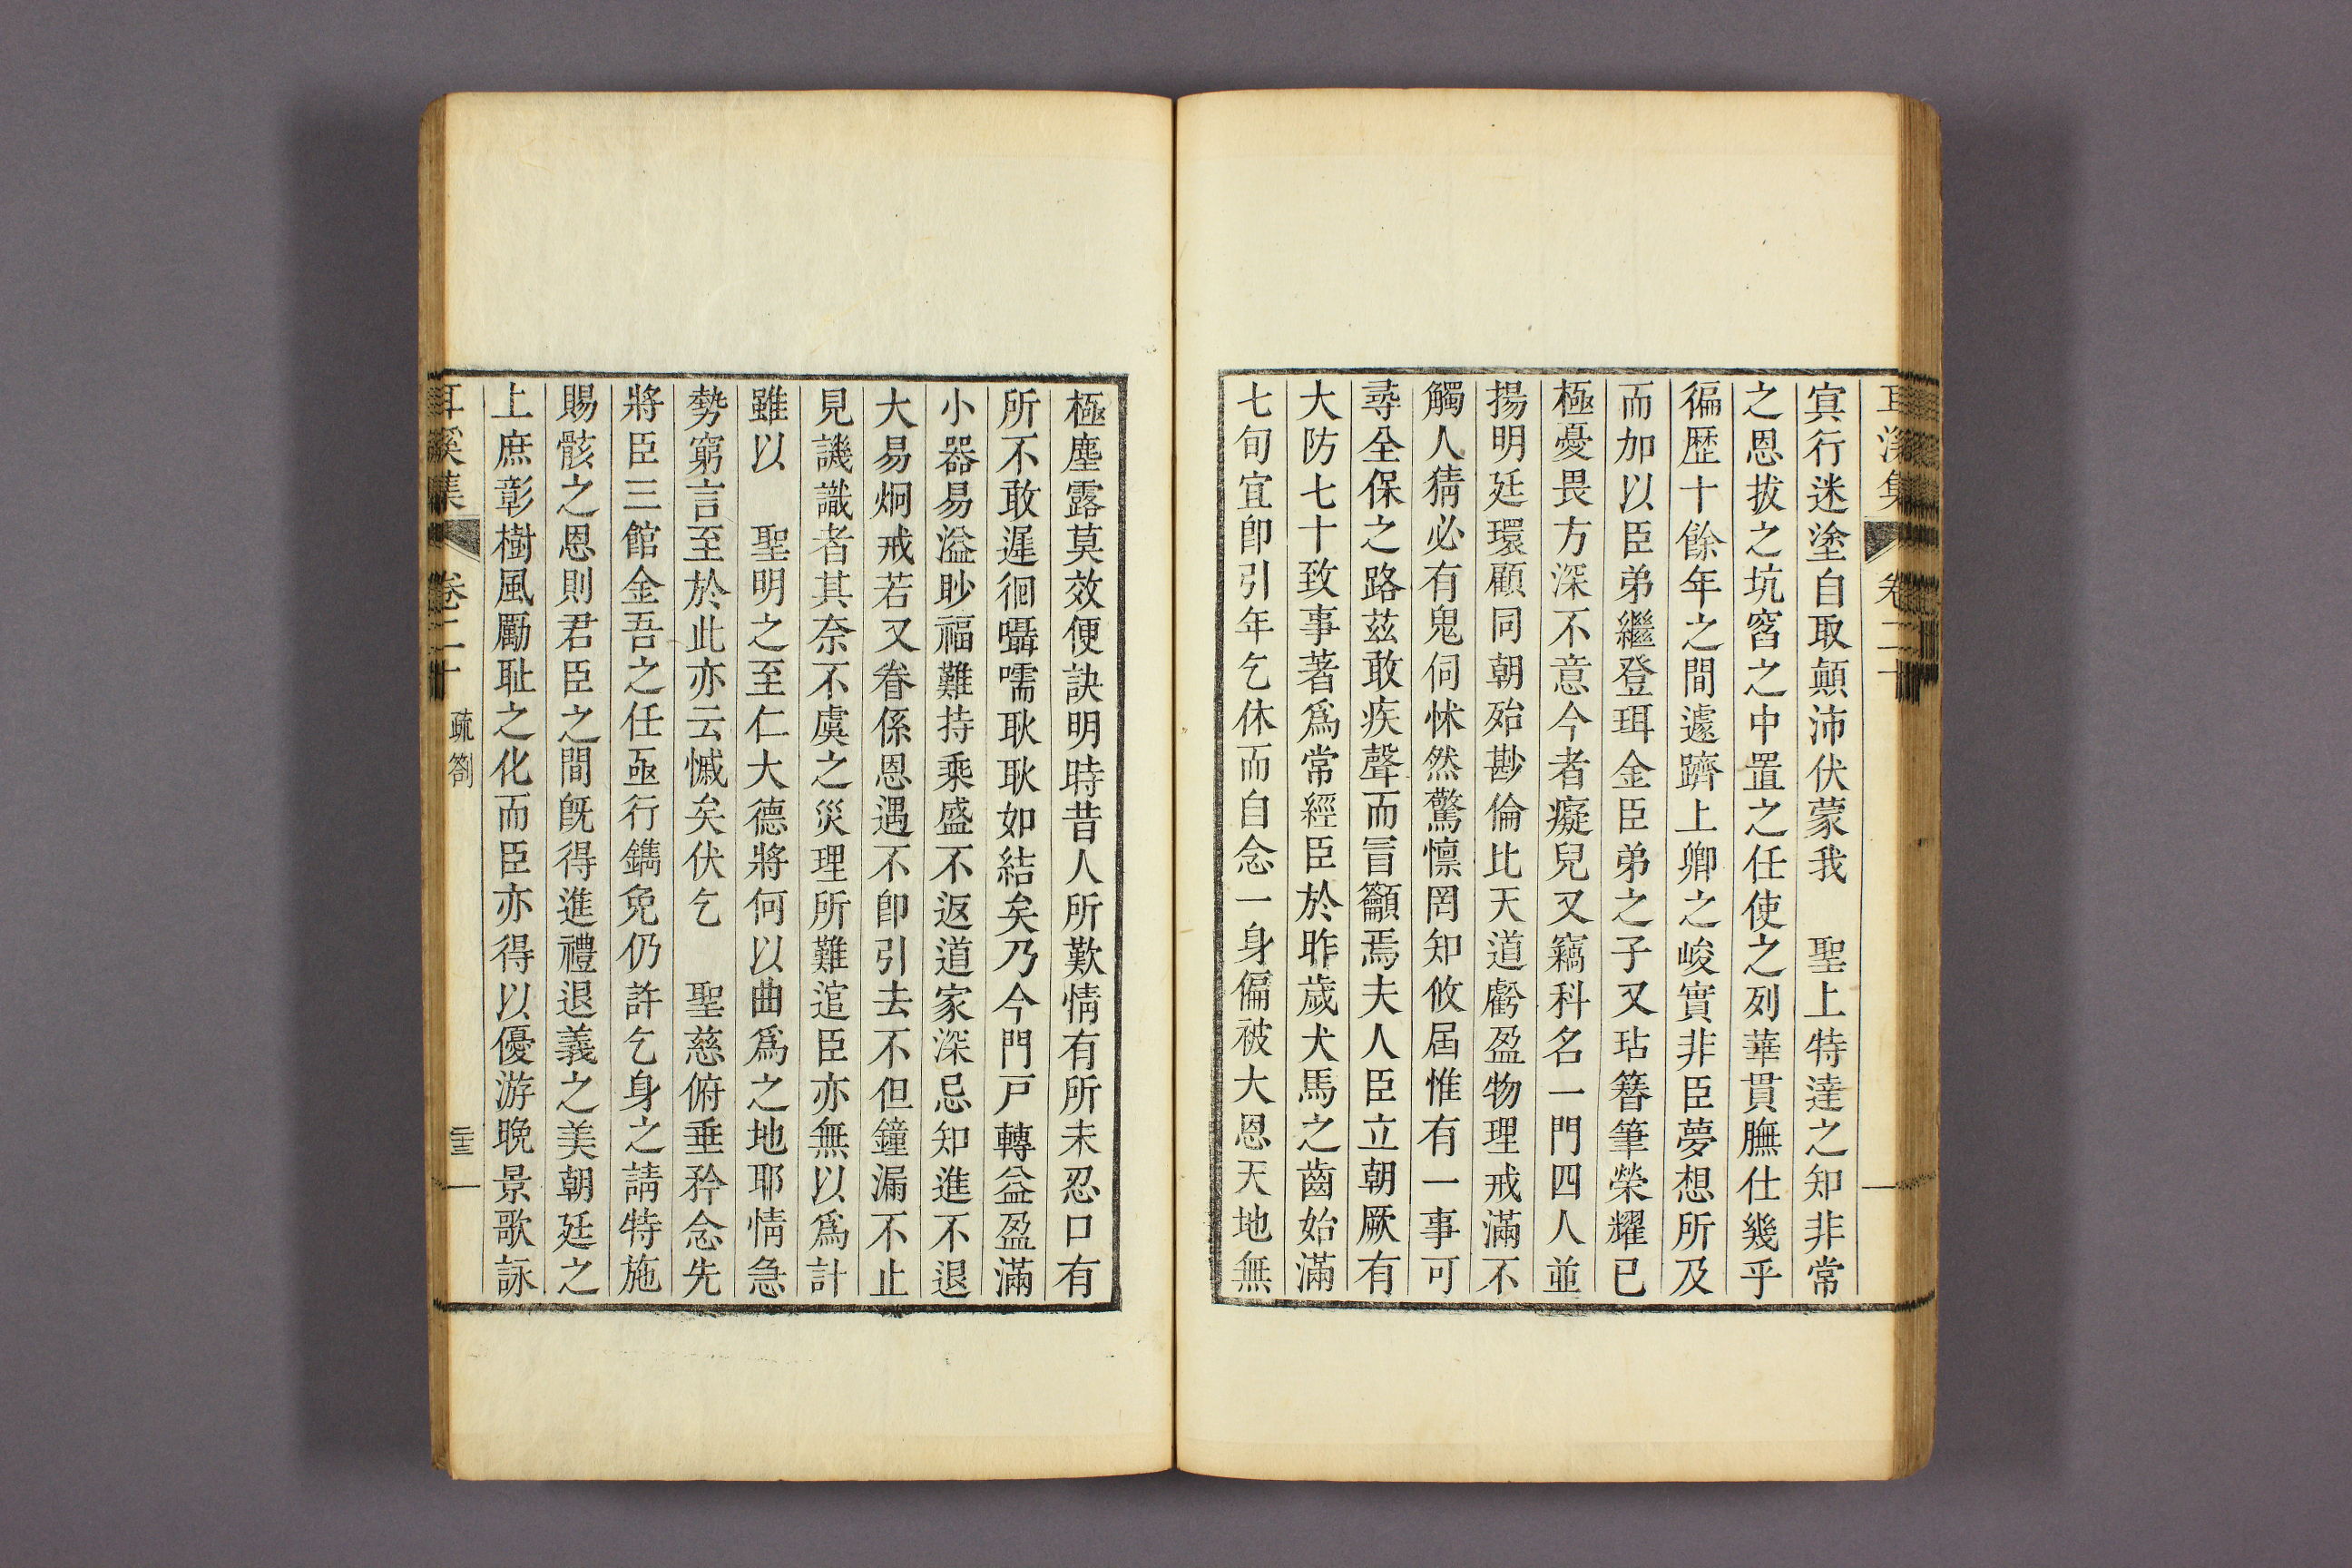 耳溪集 卷二十
㝠行迷塗自取顛沛伏蒙我 聖上特達之知非常
之恩拔之坑窞之中置之任使之列華貫膴仕幾乎
徧歷十餘年之間遽躋上卿之峻實非臣夢想所及
而加以臣弟繼登珥金臣弟之子又玷簪筆榮耀已
極憂畏方深不意今者癡兒又竊科名一門四人並
揚明廷環顧同朝殆尠倫比天道虧盈物理戒滿不
觸人猜必有鬼伺怵然驚懍罔知攸屆惟有一事可
尋全保之路玆敢疾聲而冒籲焉夫人臣立朝厥有
大防七十致事著爲常經臣於昨歲犬馬之齒始滿
七旬宜卽引年乞休而自念一身偏被大恩天地無
極塵露莫效便訣明時昔人所歎情有所未忍口有
所不敢遲徊囁嚅耿耿如結矣乃今門戸轉益盈滿
小器易溢眇福難持乘盛不返道家深忌知進不退
大易炯戒若又眷係恩遇不卽引去不但鐘漏不止
見譏識者其奈不虞之災理所難逭臣亦無以爲計
雖以 聖明之至仁大德將何以曲爲之地耶情急
勢窮言至於此亦云慽矣伏乞 聖慈俯垂矜念先
將臣三館金吾之任亟行鐫免仍許乞身之請特施
賜骸之恩則君臣之間旣得進禮退義之美朝廷之
上庶彰樹風勵耻之化而臣亦得以優游晩景歌詠
耳溪集 卷二十 疏箚 二十三